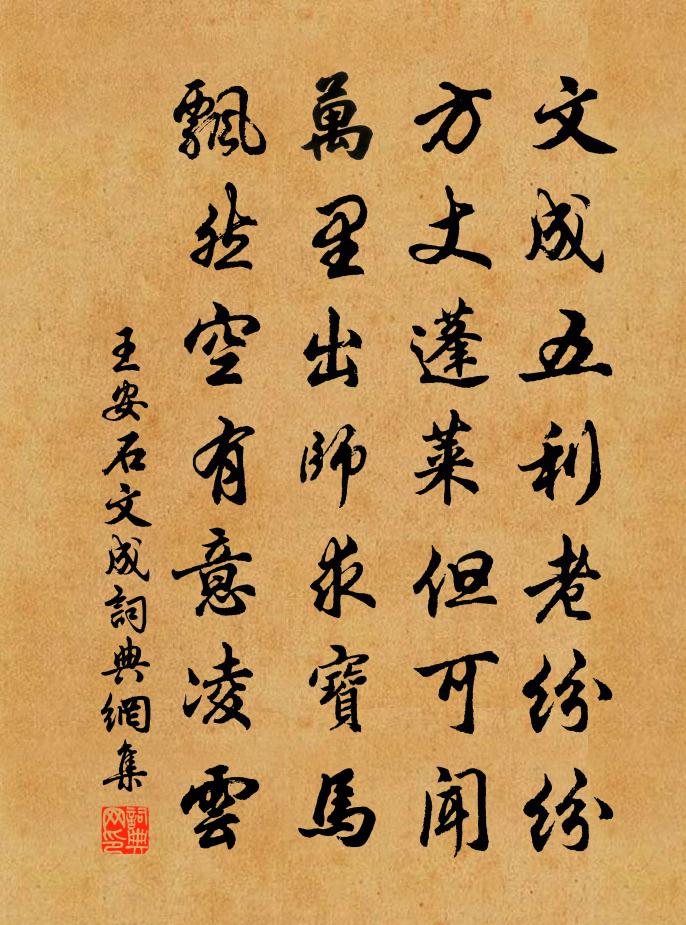 文成五利老紛紛
方丈蓬萊但可聞
萬里出師求寶馬
飄然空有意凌雲
王安石文成詞典網集
詞典网印